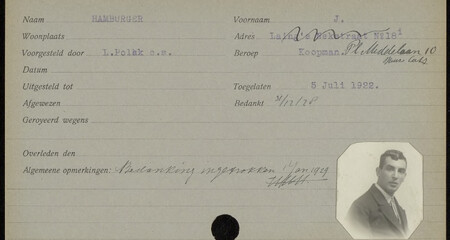 Naam HAMBURGER Voornaam J.
Woonplaats Adres
Voorgesteld door L.Polak e.a. Beroep Koopman. Pl. Middellaan 10
Datum
Uitgesteld tot Toegelaten 5 Juli 1922.
Afgewezen Bedankt
Geroyeerd wegens
Overleden den
Algemene opmerkingen: Bedanking ingetrokken 1929